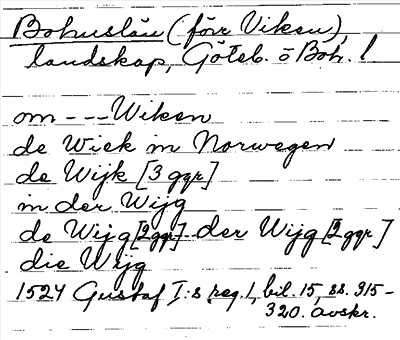 Bohuslän (förr Viken),
landskap, Göteb. o Boh. l
om - - - Wiken
de Wiek in Norwegen
de Wijk [3 ggr]
in der Wijg
de Wijg [2 ggr] der Wijg [2 ggr]
die Wijg
1524 Gustaf I:s reg. 1, bil. 15, ss. 315-
320. avskr.